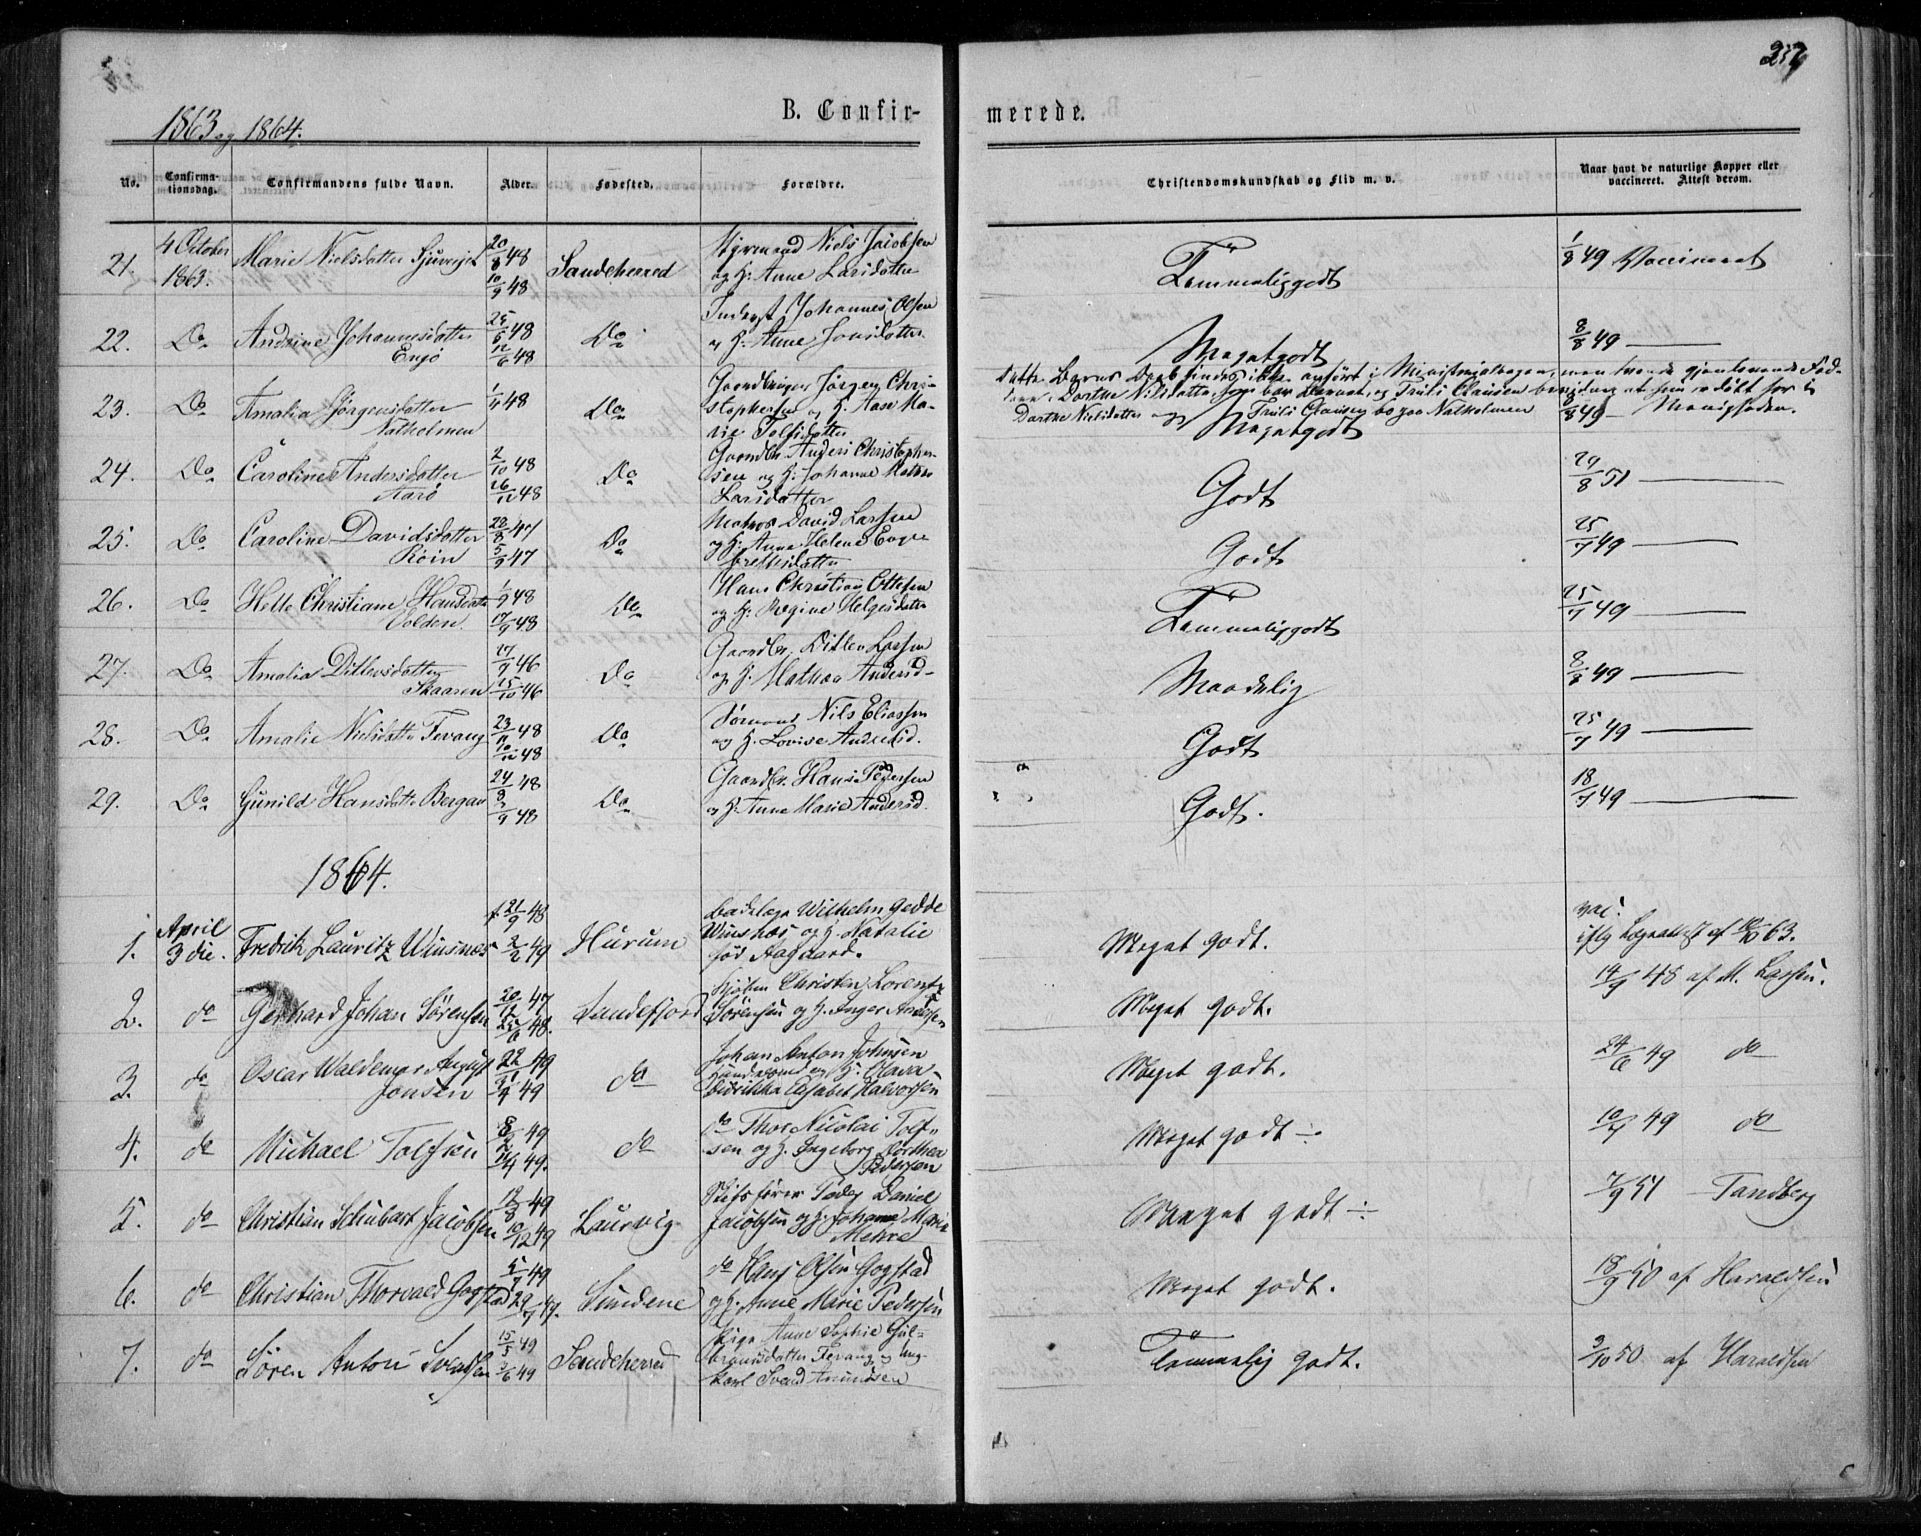 257
1863 og 1864.
B. Confirmerede.
No. Confirmationsdag. Confirmandens fulde Navn. Alder. Fødested. Forældre. Christendomskundskab og Flid m. v. Naar havt de naturlige Kopper eller vaccineret. Attest derom.
21. 4 October 1863. Marie Nielsdatter 20/8 48 10/9 48 Sandeherred Styrmand Niels Jacobsen og H. Anne Larsdatter Temmelig godt 1/8 49 Vaccineret
22. Do Andrine Johannesdatter Engø 25/5 48 12/6 48 Do Inderst Johannes Olsen og H. Anne Meget godt 8/8 49 —
Dette Barns Daab findes ikke anført i Ministerialbogen, men
23. Do Amalia Jørgensdatter Natholmen 1/4 48 Do Gaardbruger Jørgen Christophersen og H. Aase Marie Tolfsdatter Dorthe Nielsdatter og Truls Clausen bo paa Natholmen Meget godt 8/8 49 — Menigheden.
24. Do Caroline Andersdatter Aarø 2/10 48 26/12 48 Do Gaardbr. Anders Christophersen og H. Johanne Mathea Larsdatter Godt 29/8 51 —
25. Do Caroline Davidsdatter Røin 28/8 47 5/9 47 Do Matros David Larsen og H. Anne Helene Godt 25/7 49 —
26. Do Helle Christiane Hansdatter Volden 1/9 48 17/9 48 Do Hans Christian Ottesen og H. Regine Helgesdatter Temmelig godt 25/7 49 —
27. Do Amalia Ditlevsdatter Skaaren 17/9 46 15/10 46 Do Gaardbr. Ditlev Larsen og H. Mathea Andersd. Maadelig 8/8 49 —
28. Do Amalie Nielsdatter Fevang 23/11 48 /12 48 Do Sømand Nils Eliassen og H. Lovise Andersd. Godt 25/7 49 —
29. Do Gunild Hansdatter Bergan 24/8 48 /9 48 Do Gaardbr. Hans Pedersen og H. Anne Marie Andersd. Godt. 18/7 49 —
1864.
1. April 3die. Fredrik Lauritz Winsnes f. 21/9 48 2/2 49 Hurum Wilhelm Gedde Winsnes og H. Natalie fød Aagaard. Meget godt. vac. iflg Lægeattest af 10/10 63.
2. do Gerhard Johan Sørensen 20/12 47 25/6 48. Sandefjord Kjøbm Christen Lorentz Sørensen og H. Inger Andersen Meget godt. 14/9 48 af M. Larsen.
3. do Oscar Waldemar August Jonsen 22/1 49 /4 49 do Johan Anton Johnsen og H. Olava Didrikka Elisabet Halvorsen Meget godt. 24/6 49 do
4. do Michael Tolfsen 8/2 49 /4 49. do do Thor Nicolai Tolfsen og H. Ingeborg Dorthea Pedersen Meget godt ÷ 10/7 49 do
5. do Christian Schubart Jacobsen 12/8 49 10/12 49 Laurvig Skibsfører Peder Daniel Jacobsen og H. Johanne Marie Mehre Meget godt ÷ 7/9 51 Tandberg
6. do Christian Thorvald Gogstad 5/7 49 29/7 49. Sundene do Hans Olsen Gogstad og H. Anne Marie Pedersen Meget godt. 18/9 50 af Haraldsen
7. do Søren Anton Svendsen 15/5 49 3/6 49 Sandeherred Pige Anne Sophie Gulbrandsdatter Fevang og Ungkarl Svend Amundsen Temmelig godt. 2/10 50 af Haraldsen